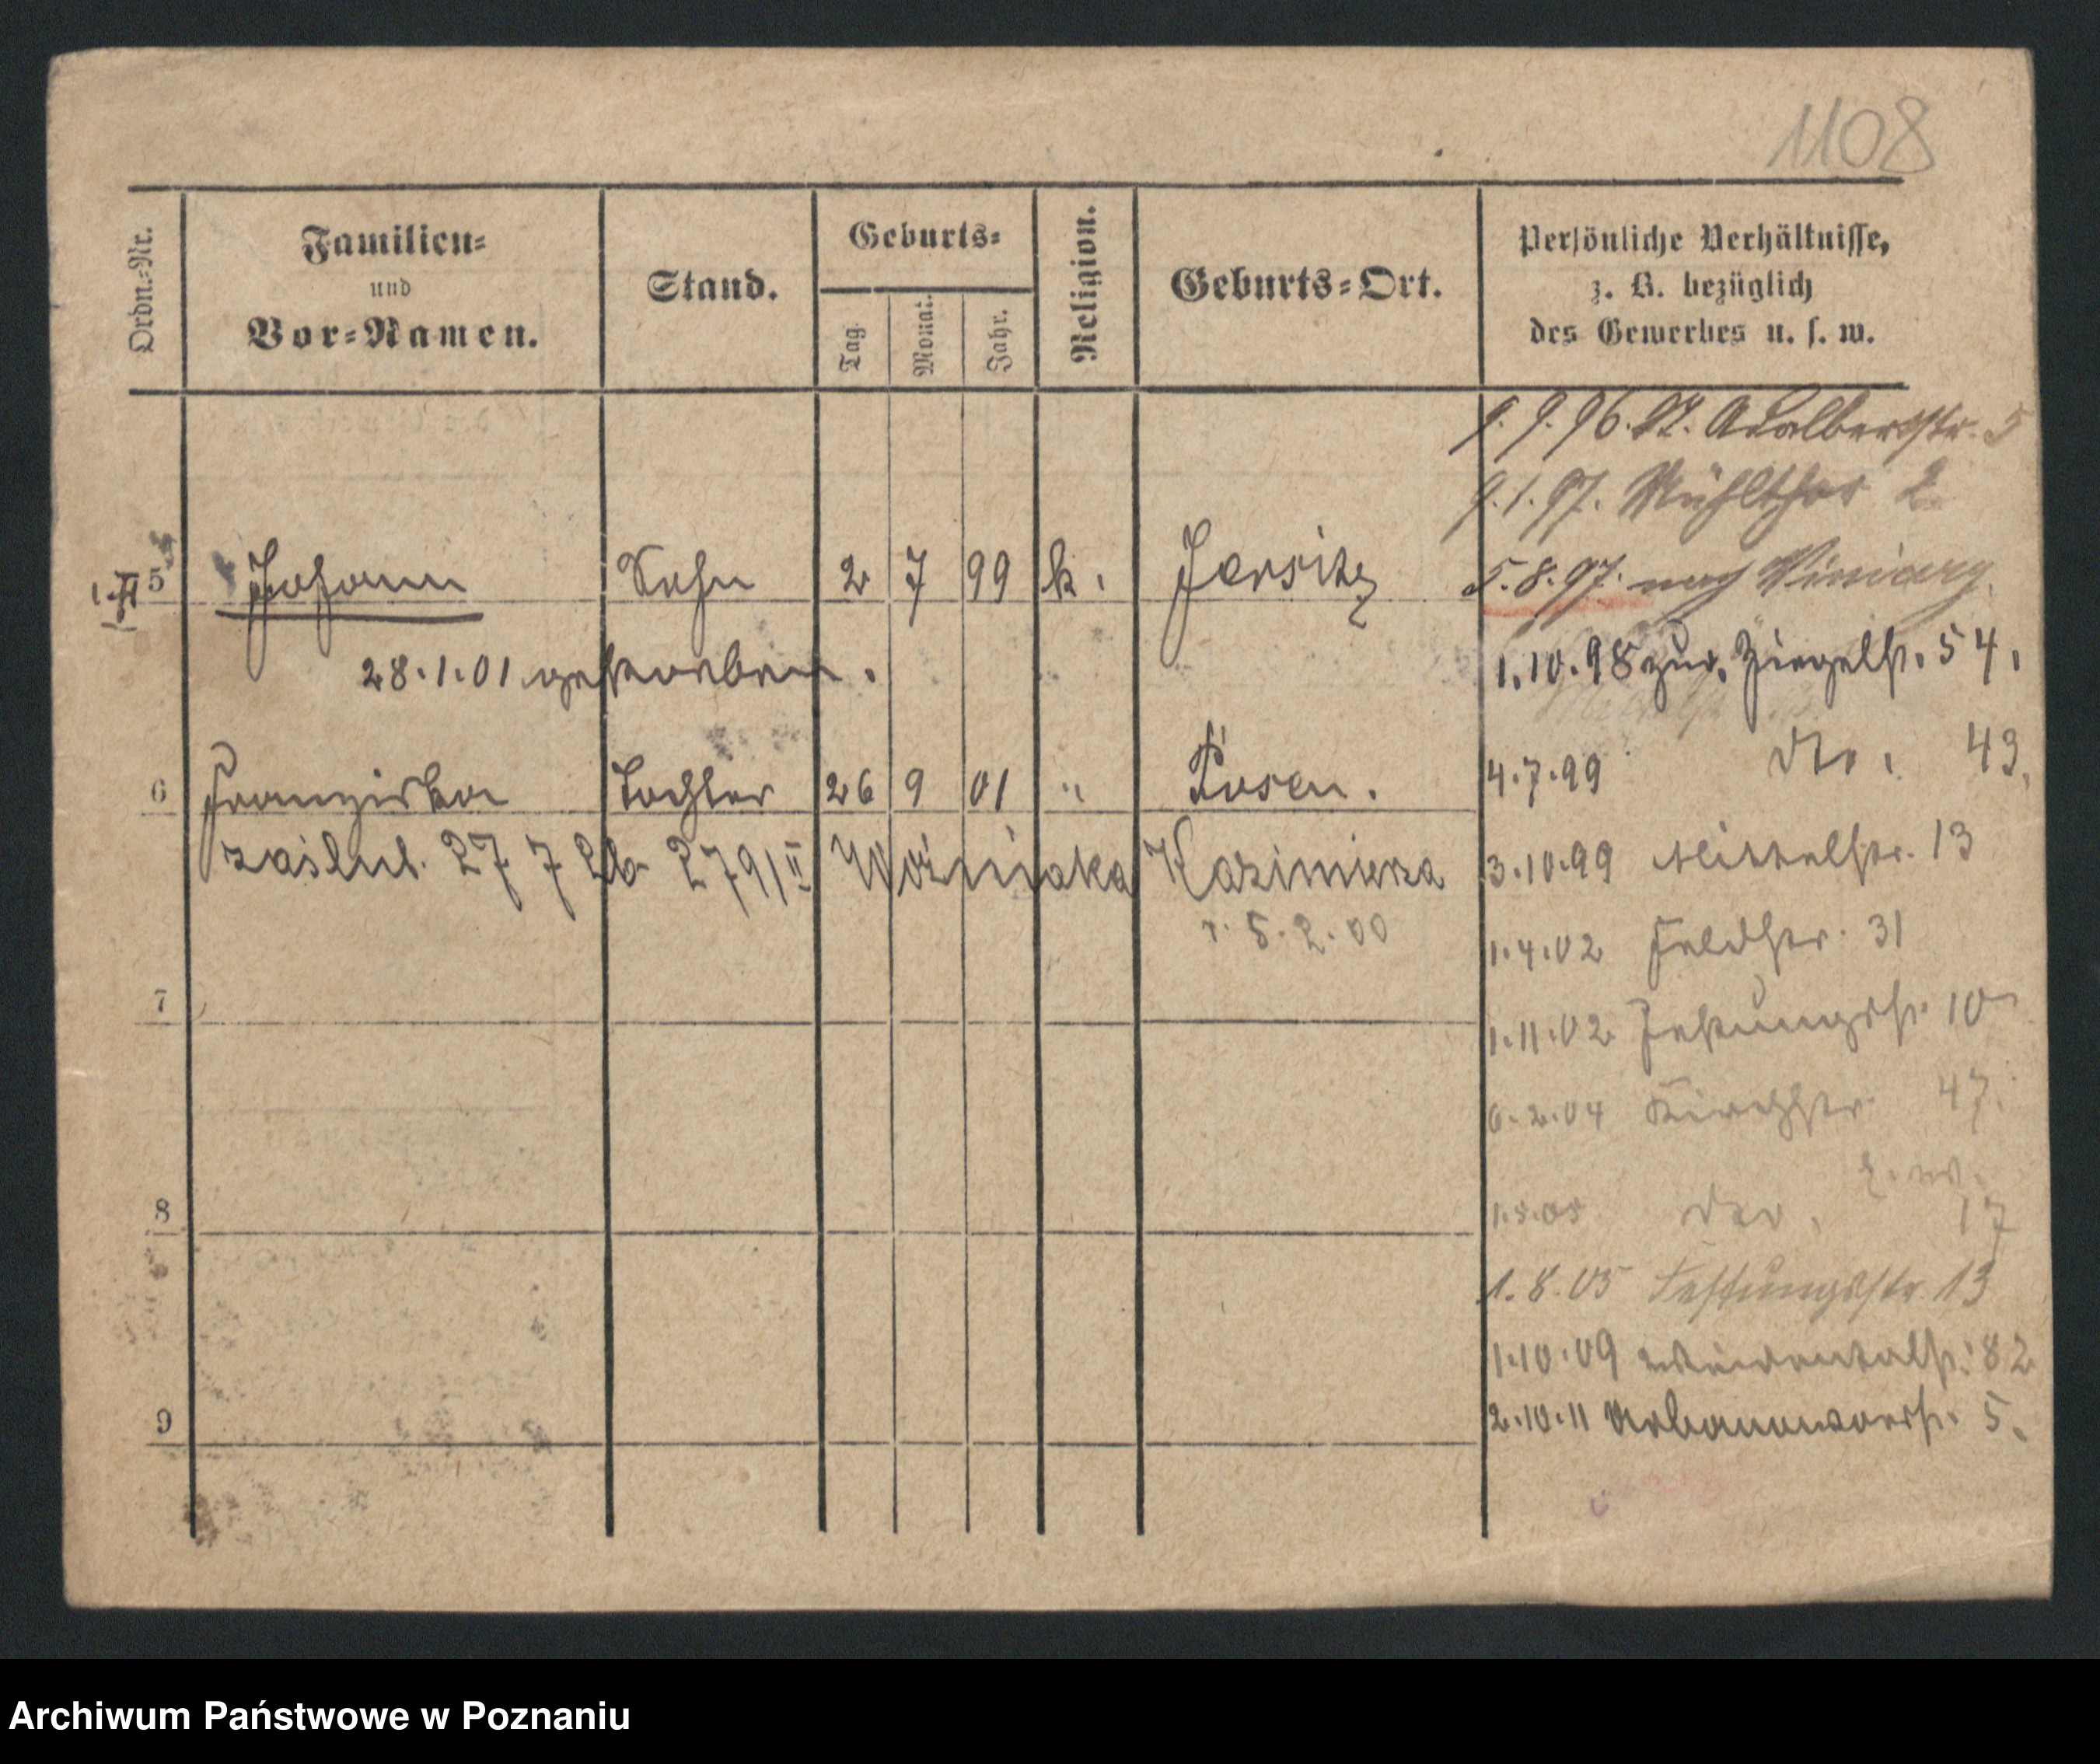 1108
Ordn.-Nr.
Familien-
und
Vor-Namen.
Stand.
Geburts-
Tag.
Monat.
Jahr.
Religion.
Geburts-Ort.
Persönliche Verhältnisse,
z. B. bezüglich
des Gewerbes u. s. w.
9. 9. 96. Adalbertstr. 5
9. 1. 97. Mühlthor 2
5. 8. 97. nach Winiary.
5 Johann Sohn 2 7 99 k. Jersitz
1.10.98 zur. Ziegelstr. 54.
28.1.01 gestorben.
6 Franziska Tochter 26 9 01 " Posen.
4.7.99 dto. 43.
zaślub. 27 7 26 279/II Woźniaka Kazimierza
r. 5. 2. 00
3.10.99 Mittelstr. 13
1.4.02 Feldstr. 31
7
1.11.02 Festungsstr. 10
6.2.04 Kirchstr. 47.
8
1.5.05 dto. 17
1. 8. 05 Festungsstr. 13
1.10.09 82
9
2.10.11 5.
Archiwum Państwowe w Poznaniu